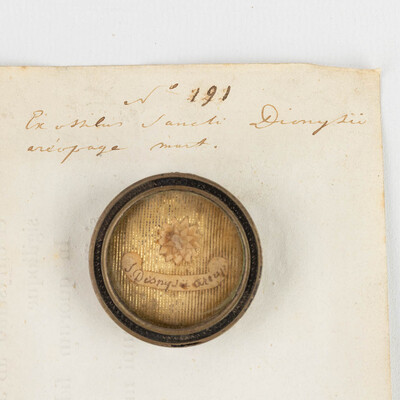 N° 191
Ex ossibus Sancti Dionysii
aréopage mart.
S Dionysii areop